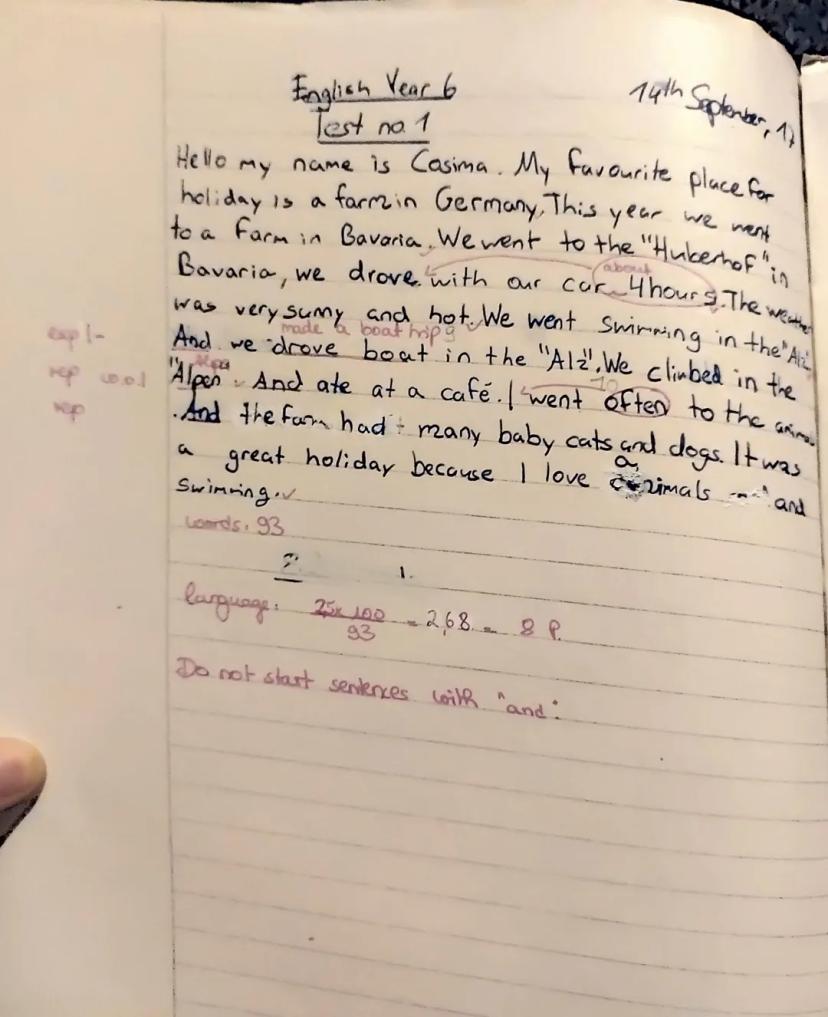 English Year 6
14th September, 17
Test no. 1
Hello my name is Casima. My favourite place for
holiday is a farm in Germany. This year we went
to a farm in Bavaria. We went to the "Huberhof" in
about
Bavaria, we drove with our car 4 hours. The weather
was very sunny and hot. We went swimming in the "Alz"
made a boat trip
And we drove boat in the "Alz". We climbed in the
exp 1-
Alps
"Alpen". And ate at a café. I went often to the animals
rep w.o.1
And the farm had many baby cats and dogs. It was
rep
a great holiday because I love animals and
swimming.
words: 93
2
1.
language: 2,5x100/93 = 2,68 = 8 P.
Do not start sentences with "and".